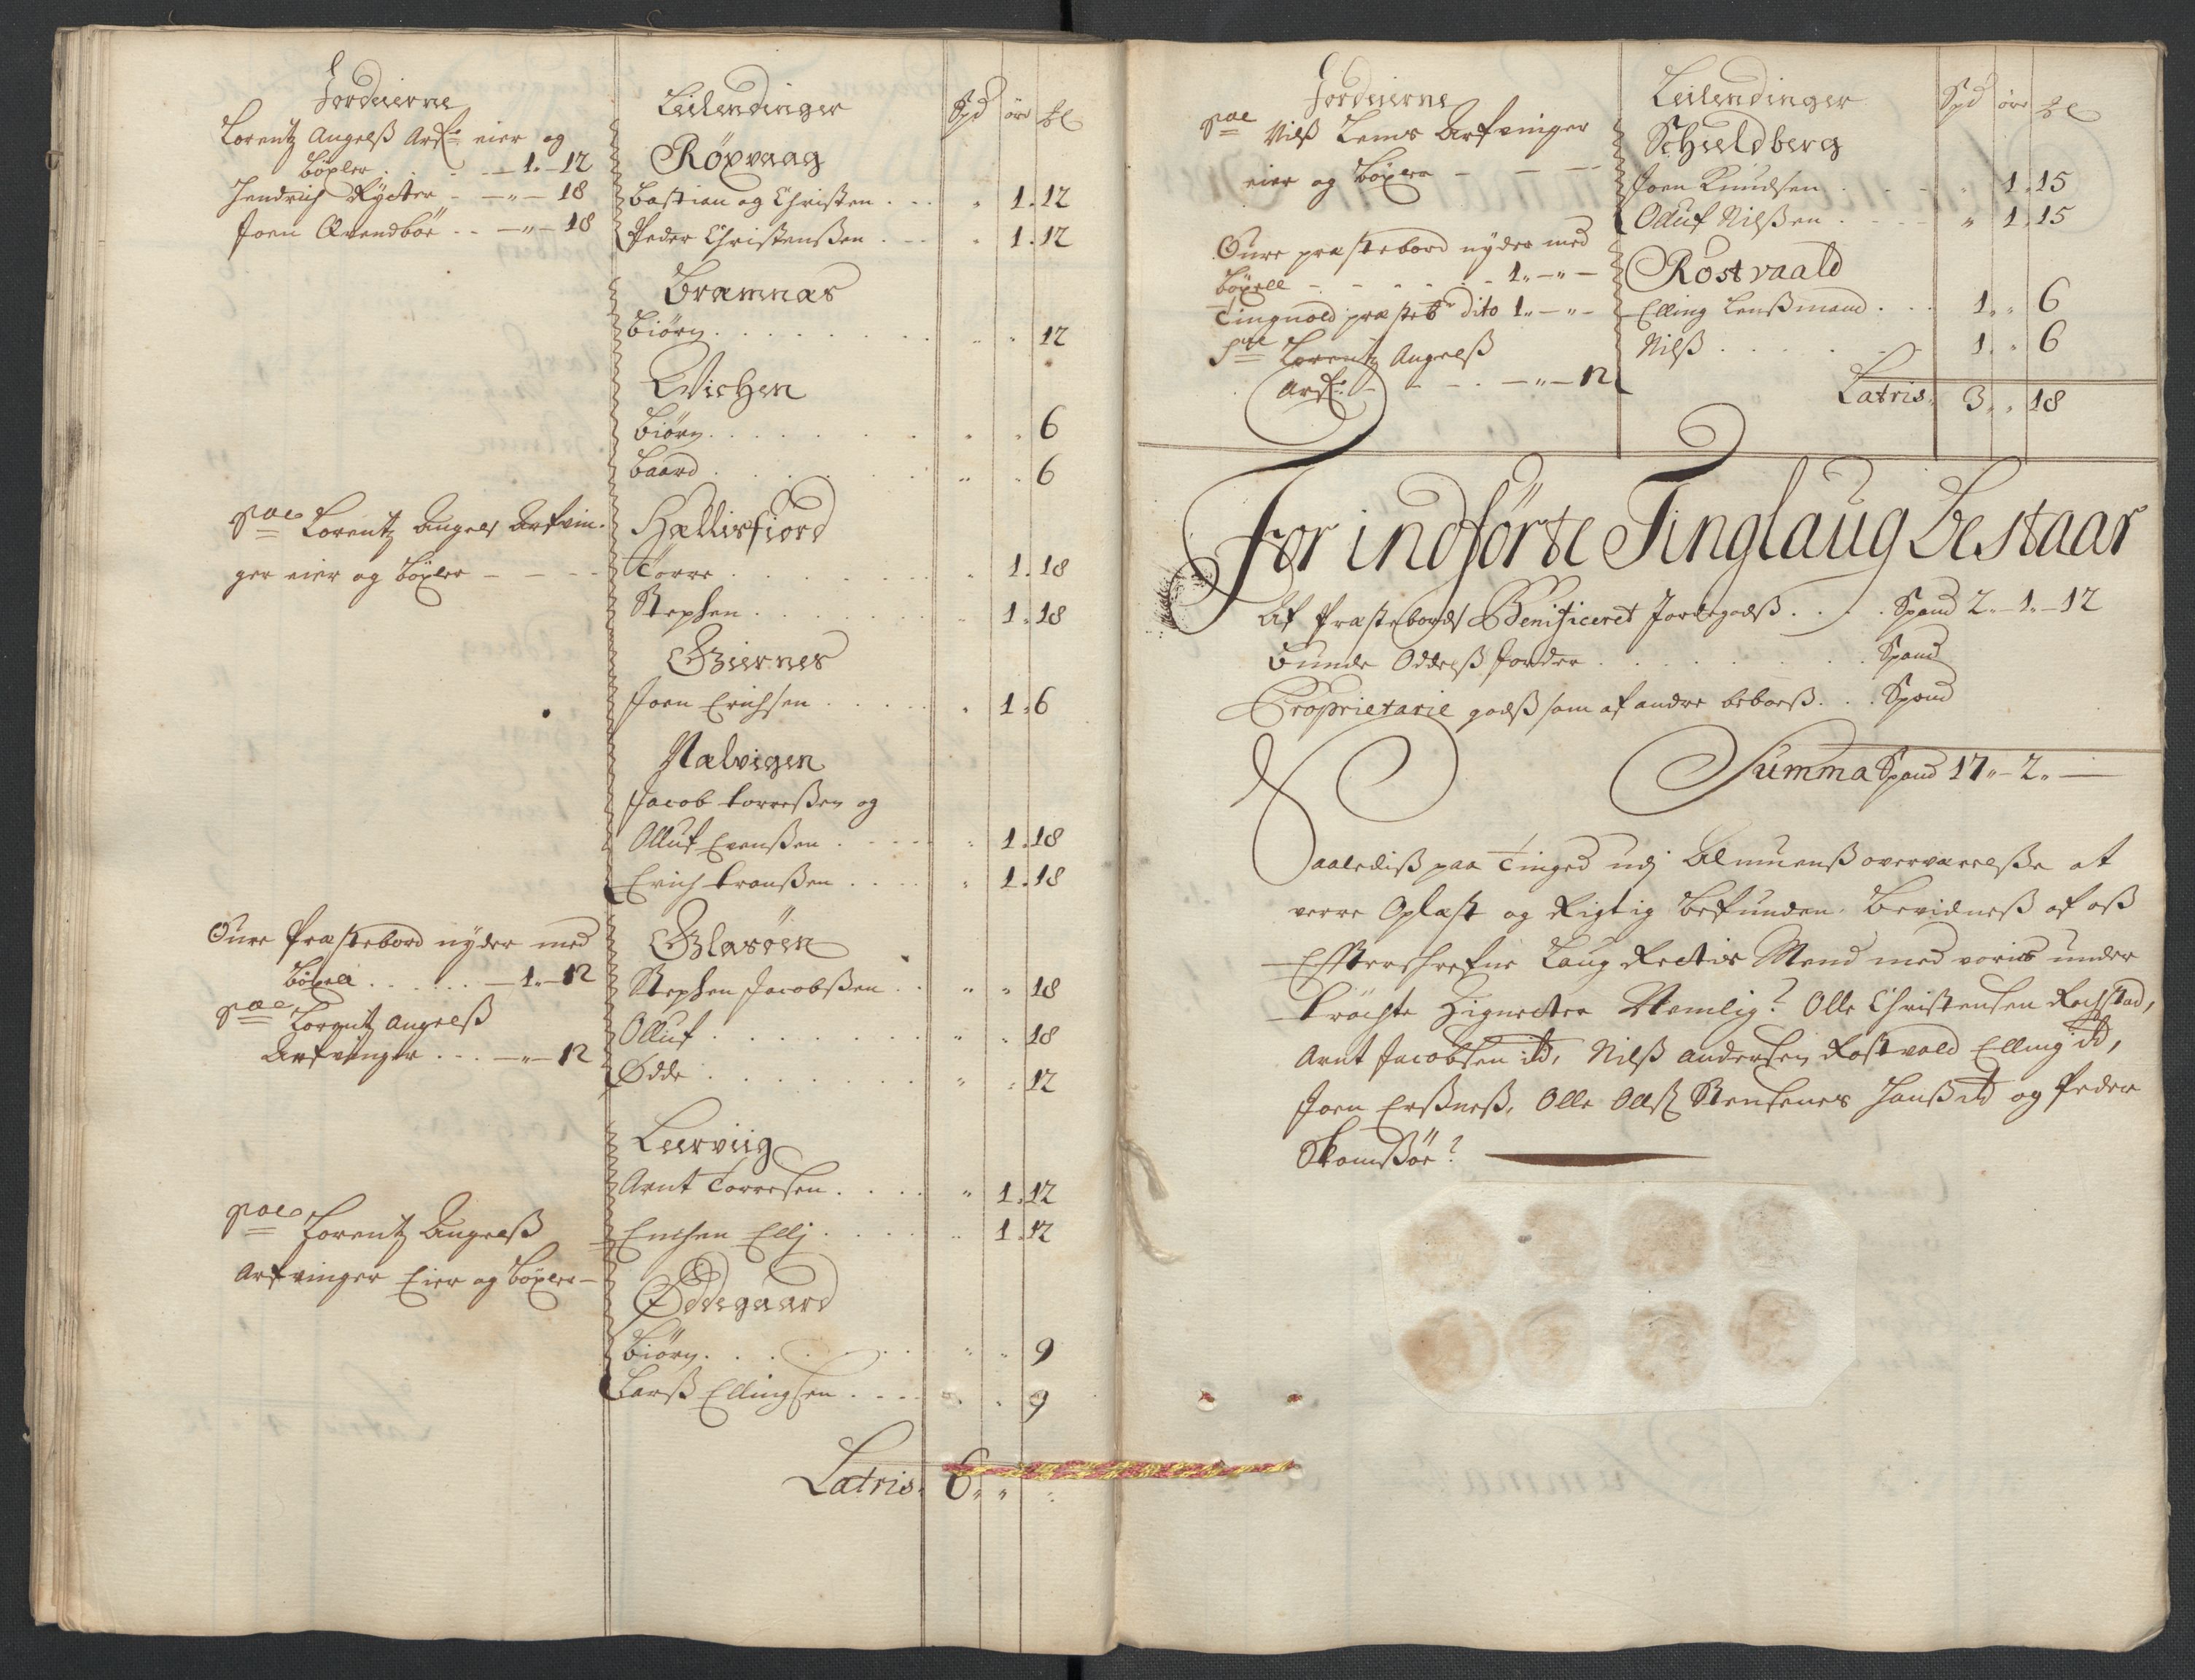 Jordeierne
Lorentz Angelß Arf: eier og
böxler . . . . 1.-12
Hendrich Rÿcter - -„- 18
Joen Qvendböe . . -„- 18
Sal Lorentz Angels Arfvin-
ger eier og böxler - - - -
Sure Præstebord nÿder med
böxell . . . . . . - 1.-12
Sal Lorentz Angelß
Arfvinger . . . -„- 12
Sal Lorentz Angelß
Arfvinger Eier og böxler -
Leilendinger Spd öre ℔
Röxvaag
Bastian og Christen . . . „ 1. 12
Peder Christenßen . . . „ 1. 12
Bræmnæs
Biörn . . . . . . . „ „ 12
Vichen
Biörn . . . . . . . „ „ 6
Baard . . . . . . . „ „ 6
Hællisfiord
Torre . . . . . . . „ 1. 18
Stephen . . . . . . „ 1. 18
Giernes
Joen Erichsen . . . . . „ 1. 6
Nalvigen
Jacob torreßen og
Olluf Evenßen . . . . . „ 1. 18
Erich tronßen . . . . . „ 1. 18
Glasöen
Stephen Jacobßen . . „ „ 18
Olluf . . . . . . . „ „ 18
Ødde . . . . . . . „ „ 12
Leerviig
Arnt Torresen . . . . „ 1. 12
Enchen Ellj . . . . . „ 1. 12
Øddegaard
Biörn . . . . . . . „ „ 9
Larß Ellingsen . . . . „ „ 9
Latris. 6 „ „ „
Jordeierne
Sal Nilß Lems Arfvinger
eier og böxler - - - -
Sure præstebord nÿder med
böxell - - - - - - 1„-„-
Tingvold præsteb: dito 1„-„-
Sal Lorentz Angelß
Arf: - - - - . -„- 12
Leilendinger Spd öre ℔
Schieldberg
Joen Knudsen . . . . „ 1. 15
Olluf Nilßen . . . . „ 1. 15
Röstvaald
Elling Lenßmand . . . 1„ „ 6
Nilß . . . . . . . 1. „ 6
Latris. 3„ „ 18
For indförte Tinglaug bestaar
Af Præstebords Benificeret Jordegodß . . . . Spand 2„-1„-12
Bunde Oddelß Jorder . . . . . . . . Spand
Proprietarie godß som af andre beboeß . . . Spand
Summa Spand 17„-2„-
Saaledis paa Tinged udj Almuenß overværelße at
verre Oplæst og Rigtig befunden, bevidneß af oß
Effterschrefne Laug Rettis Mend med voris under
tröchte Zignetter Nemlig? Olle Christensen Rochstad,
Arnt Jacobsen itd, Nilß andersen Rostvold Elling itd,
Joen Erßneß, Olle Olß Stensenes Hanß itd og Peder
Skomßöe?